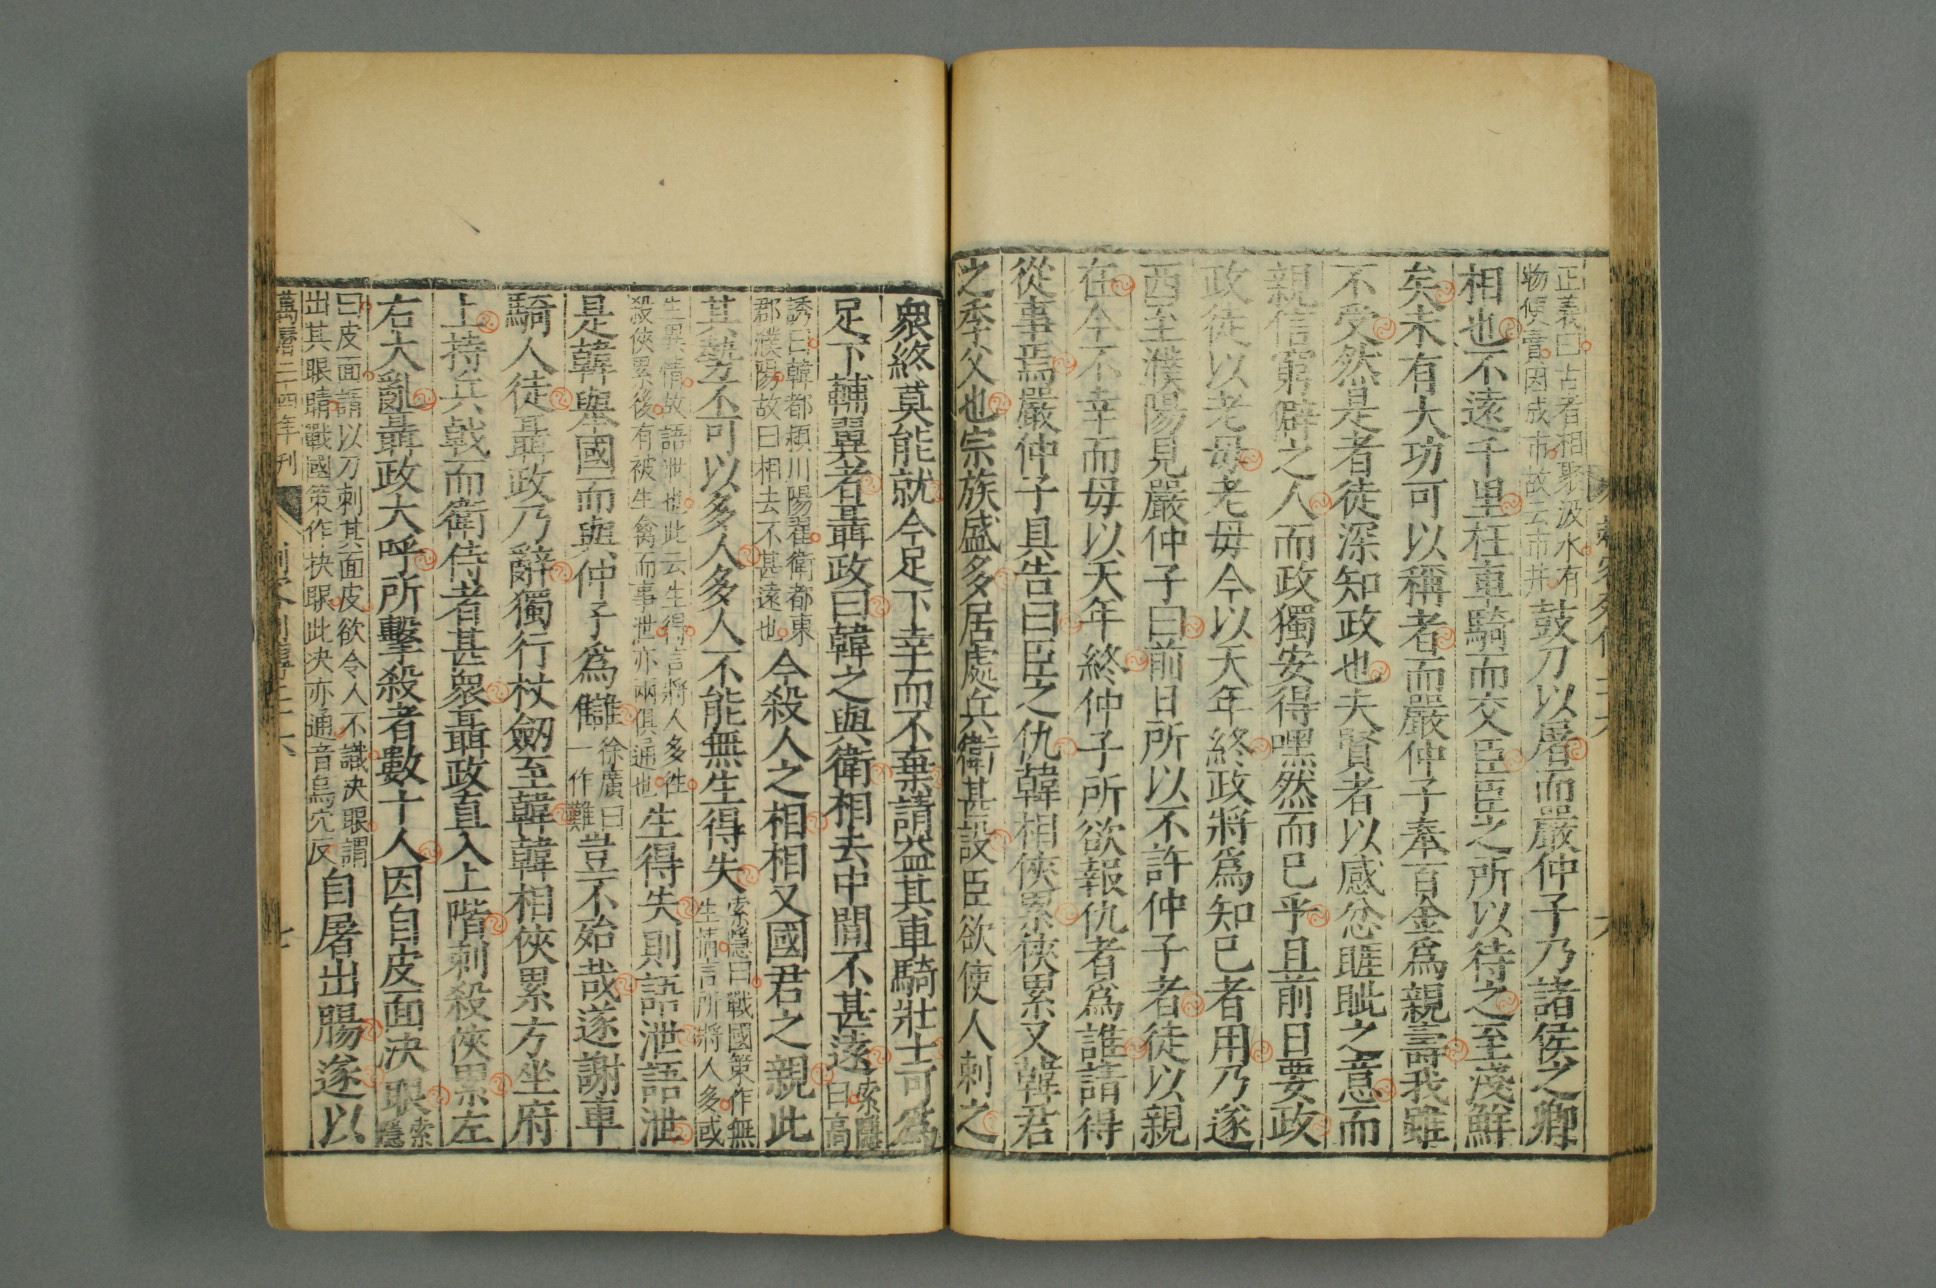 正義曰古者相聚汲水有物便賣因成市故云市井鼓刀以屠而嚴仲子乃諸侯之卿
相也不遠千里枉車騎而交臣臣之所以待之至淺鮮
矣未有大功可以稱者而嚴仲子奉百金爲親壽我雖
不受然是者徒深知政也夫賢者以感忿睚眦之意而
親信窮僻之人而政獨安得嘿然而已乎且前日要政
政徒以老母老母今以天年終政將爲知己者用乃遂
西至濮陽見嚴仲子曰前日所以不許仲子者徒以親
在今不幸而母以天年終仲子所欲報仇者爲誰請得
從事焉嚴仲子具告曰臣之仇韓相俠累俠累又韓君
之季父也宗族盛多居處兵衛甚設臣欲使人刺之
衆終莫能就今足下幸而不棄請益其車騎壯士可爲
足下輔翼者聶政曰韓之與衛相去中間不甚遠索隱曰高
誘曰韓都潁川陽翟衛都東郡濮陽故曰相去不甚遠也今殺人之相相又國君之親此
其勢不可以多人多人不能無生得失索隱曰戰國策作無生情言所將人多或
生異情故語泄也此云生得言將人多往殺俠累後有被生禽而事泄亦兩俱通也生得失則語泄語泄
是韓舉國而與仲子爲讎徐廣曰一作難豈不殆哉遂謝車
騎人徒聶政乃辭獨行杖劒至韓韓相俠累方坐府
上持兵戟而衛侍者甚衆聶政直入上階刺殺俠累左
右大亂聶政大呼所擊殺者數十人因自皮面決眼索隱
曰皮面謂以刀刺其面皮欲令人不識決眼謂出其眼睛戰國策作抉眼此決亦通音烏穴反自屠出腸遂以
萬曆二十四年刊 刺客列傳二十六 七